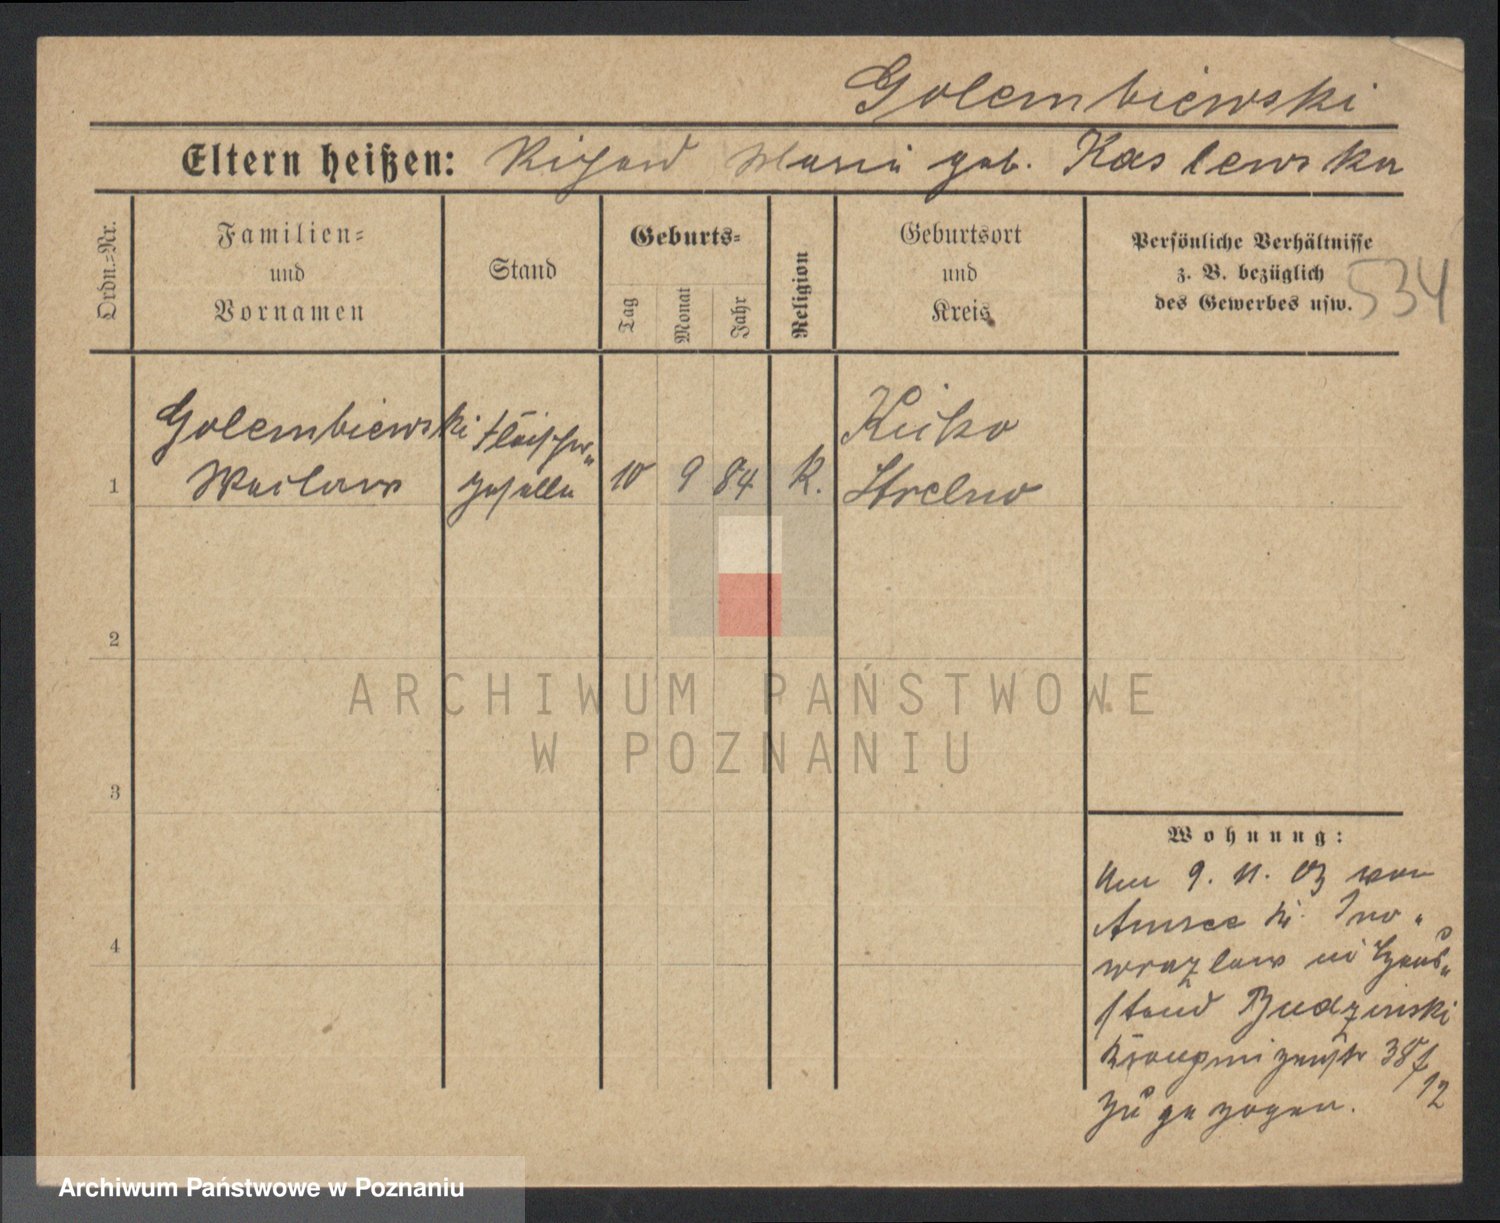 Golembiewski
Eltern heißen: Richard Maria geb. Kaslewska
Ordn.-Nr.
Familien-
und
Vornamen
Stand
Geburts-
Tag
Monat
Jahr
Religion
Geburtsort
und
Kreis
Persönliche Verhältnisse
z. B. bezüglich
des Gewerbes usw.
534
1
Golembiewski
Waclaw
Fleischer-
geselle
10
9
84
K.
Strelno
2
3
4
Wohnung:
Am 9. 11. 03 von
Amsee Kr. Ino-
wrazlaw in
Budzinski
12
zugezogen.
ARCHIWUM PAŃSTWOWE
W POZNANIU
Archiwum Państwowe w Poznaniu